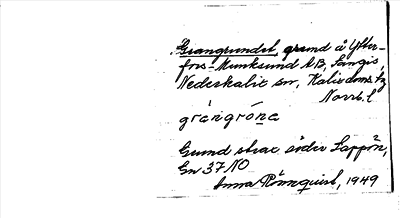 Grangrundet, grund å Ytter-
fors-Munksund AB, Sangis,
Nederkalix sn, Kalix doms. tg
Norrb. l
gràngróna
Grund strax söder Lappön,
En 37 NO
Anna Rönnquist, 1949